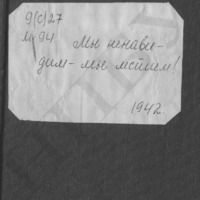 9(с)27
М-94
Мы ненави-
дим - мы мстим!
1942